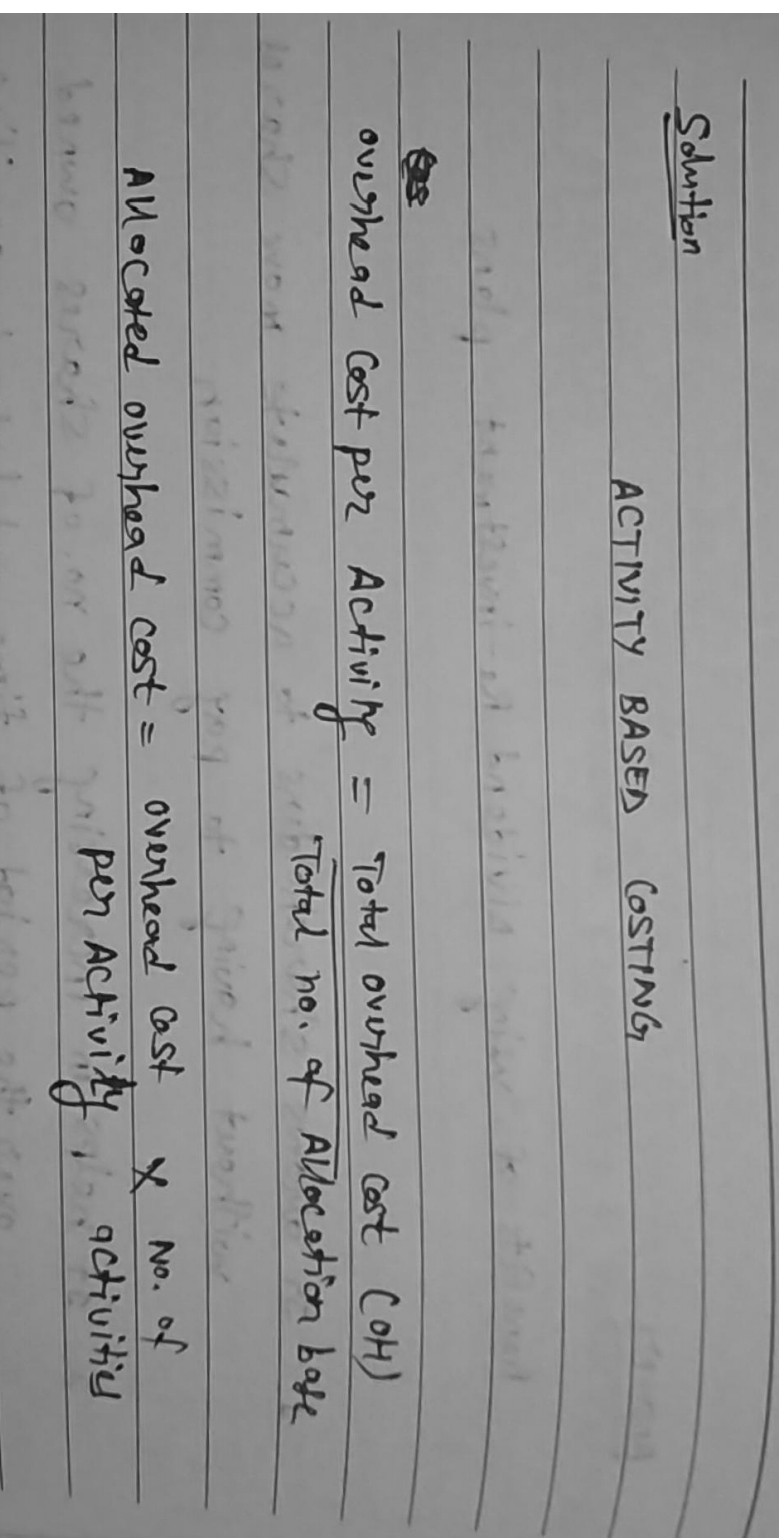 Solution
ACTIVITY BASED COSTING
overhead Cost per Activity = Total overhead cost (OH)
Total no. of Allocation base
Allocated overhead cost = overhead cost x No. of
per Activity activities